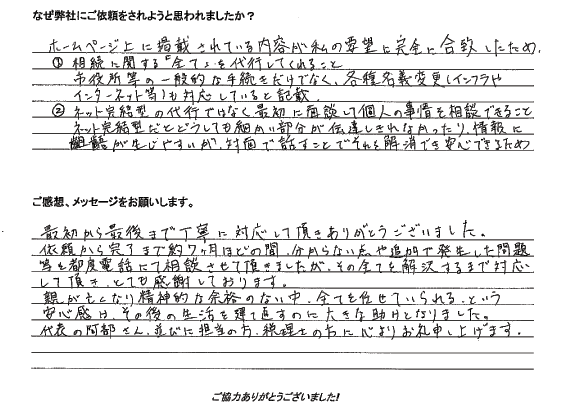 なぜ弊社にご依頼をされようと思われましたか？
ホームページ上に掲載されている内容が私の要望に完全に合致したため。
① 相続に関する「全て」を代行してくれること
市役所等の一般的な手続きだけでなく、各種名義変更(インフラや
インターネット等)も対応していると記載。
② ネット完結型の代行ではなく最初に面談して個人の事情を相談できること
ネット完結型だとどうしても細かい部分が伝達しきれなかったり、情報に
齟齬が生じやすいが、対面で話すことでそれを解消でき安心できるため
ご感想、メッセージをお願いします。
最初から最後まで丁寧に対応して頂きありがとうございました。
依頼から完了まで約7ヶ月ほどの間、分からない点や追加で発生した問題
等を都度電話にて相談させて頂きましたが、その全てを解決するまで対応
して頂き、とても感謝しております。
親が亡くなり精神的な余裕のない中、全てを任せていられる、という
安心感は、その後の生活を建て直すのに大きな助けとなりました。
代表の阿部さん、並びに担当の方、税理士の方に心よりお礼申し上げます。
ご協力ありがとうございました!